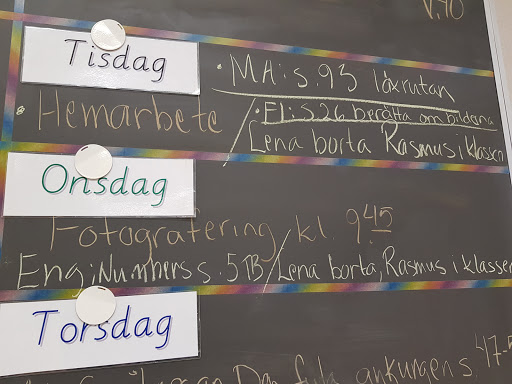 V.40
Tisdag
• MA: s. 93 läxrutan
• Hemarbete
• EI: s 26 berätta om bilderna
Lena borta Rasmus i klassen
Onsdag
Fotografering kl. 9 45
Eng: Numbers s. 5 TB / Lena borta, Rasmus i klassen
Torsdag
Den fula ankungen s 47-5